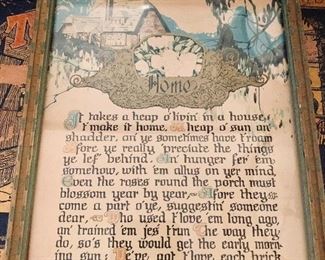 Home
It takes a heap o'livin' in a house,
t'make it home. A heap o'sun an'
shadder, an' ye sometimes have t'roam
Afore ye really 'preciate the things
ye lef' behind. An' hunger fer 'em
somehow, with 'em allus on yer mind.
Even the roses round the porch must
blossom year by year, Afore they
come a part o'ye, suggestin' someone
dear, Who used t'love 'em long ago,
an' trained 'em jes t'run The way they
do, so's they would get the early morn
ing sun; Ye've got t'love each brick